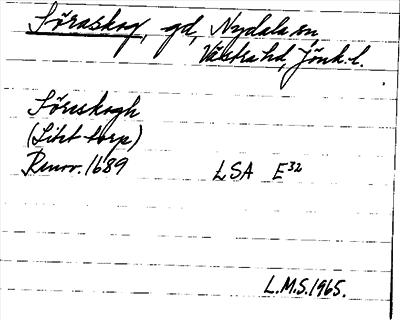 Söraskog, gd, Nydala sn,
Västra hd, Jönk. l.
Söreskogh
(Litet torp)
Renov. 1689 LSA E³²
L.M.S. 1965.